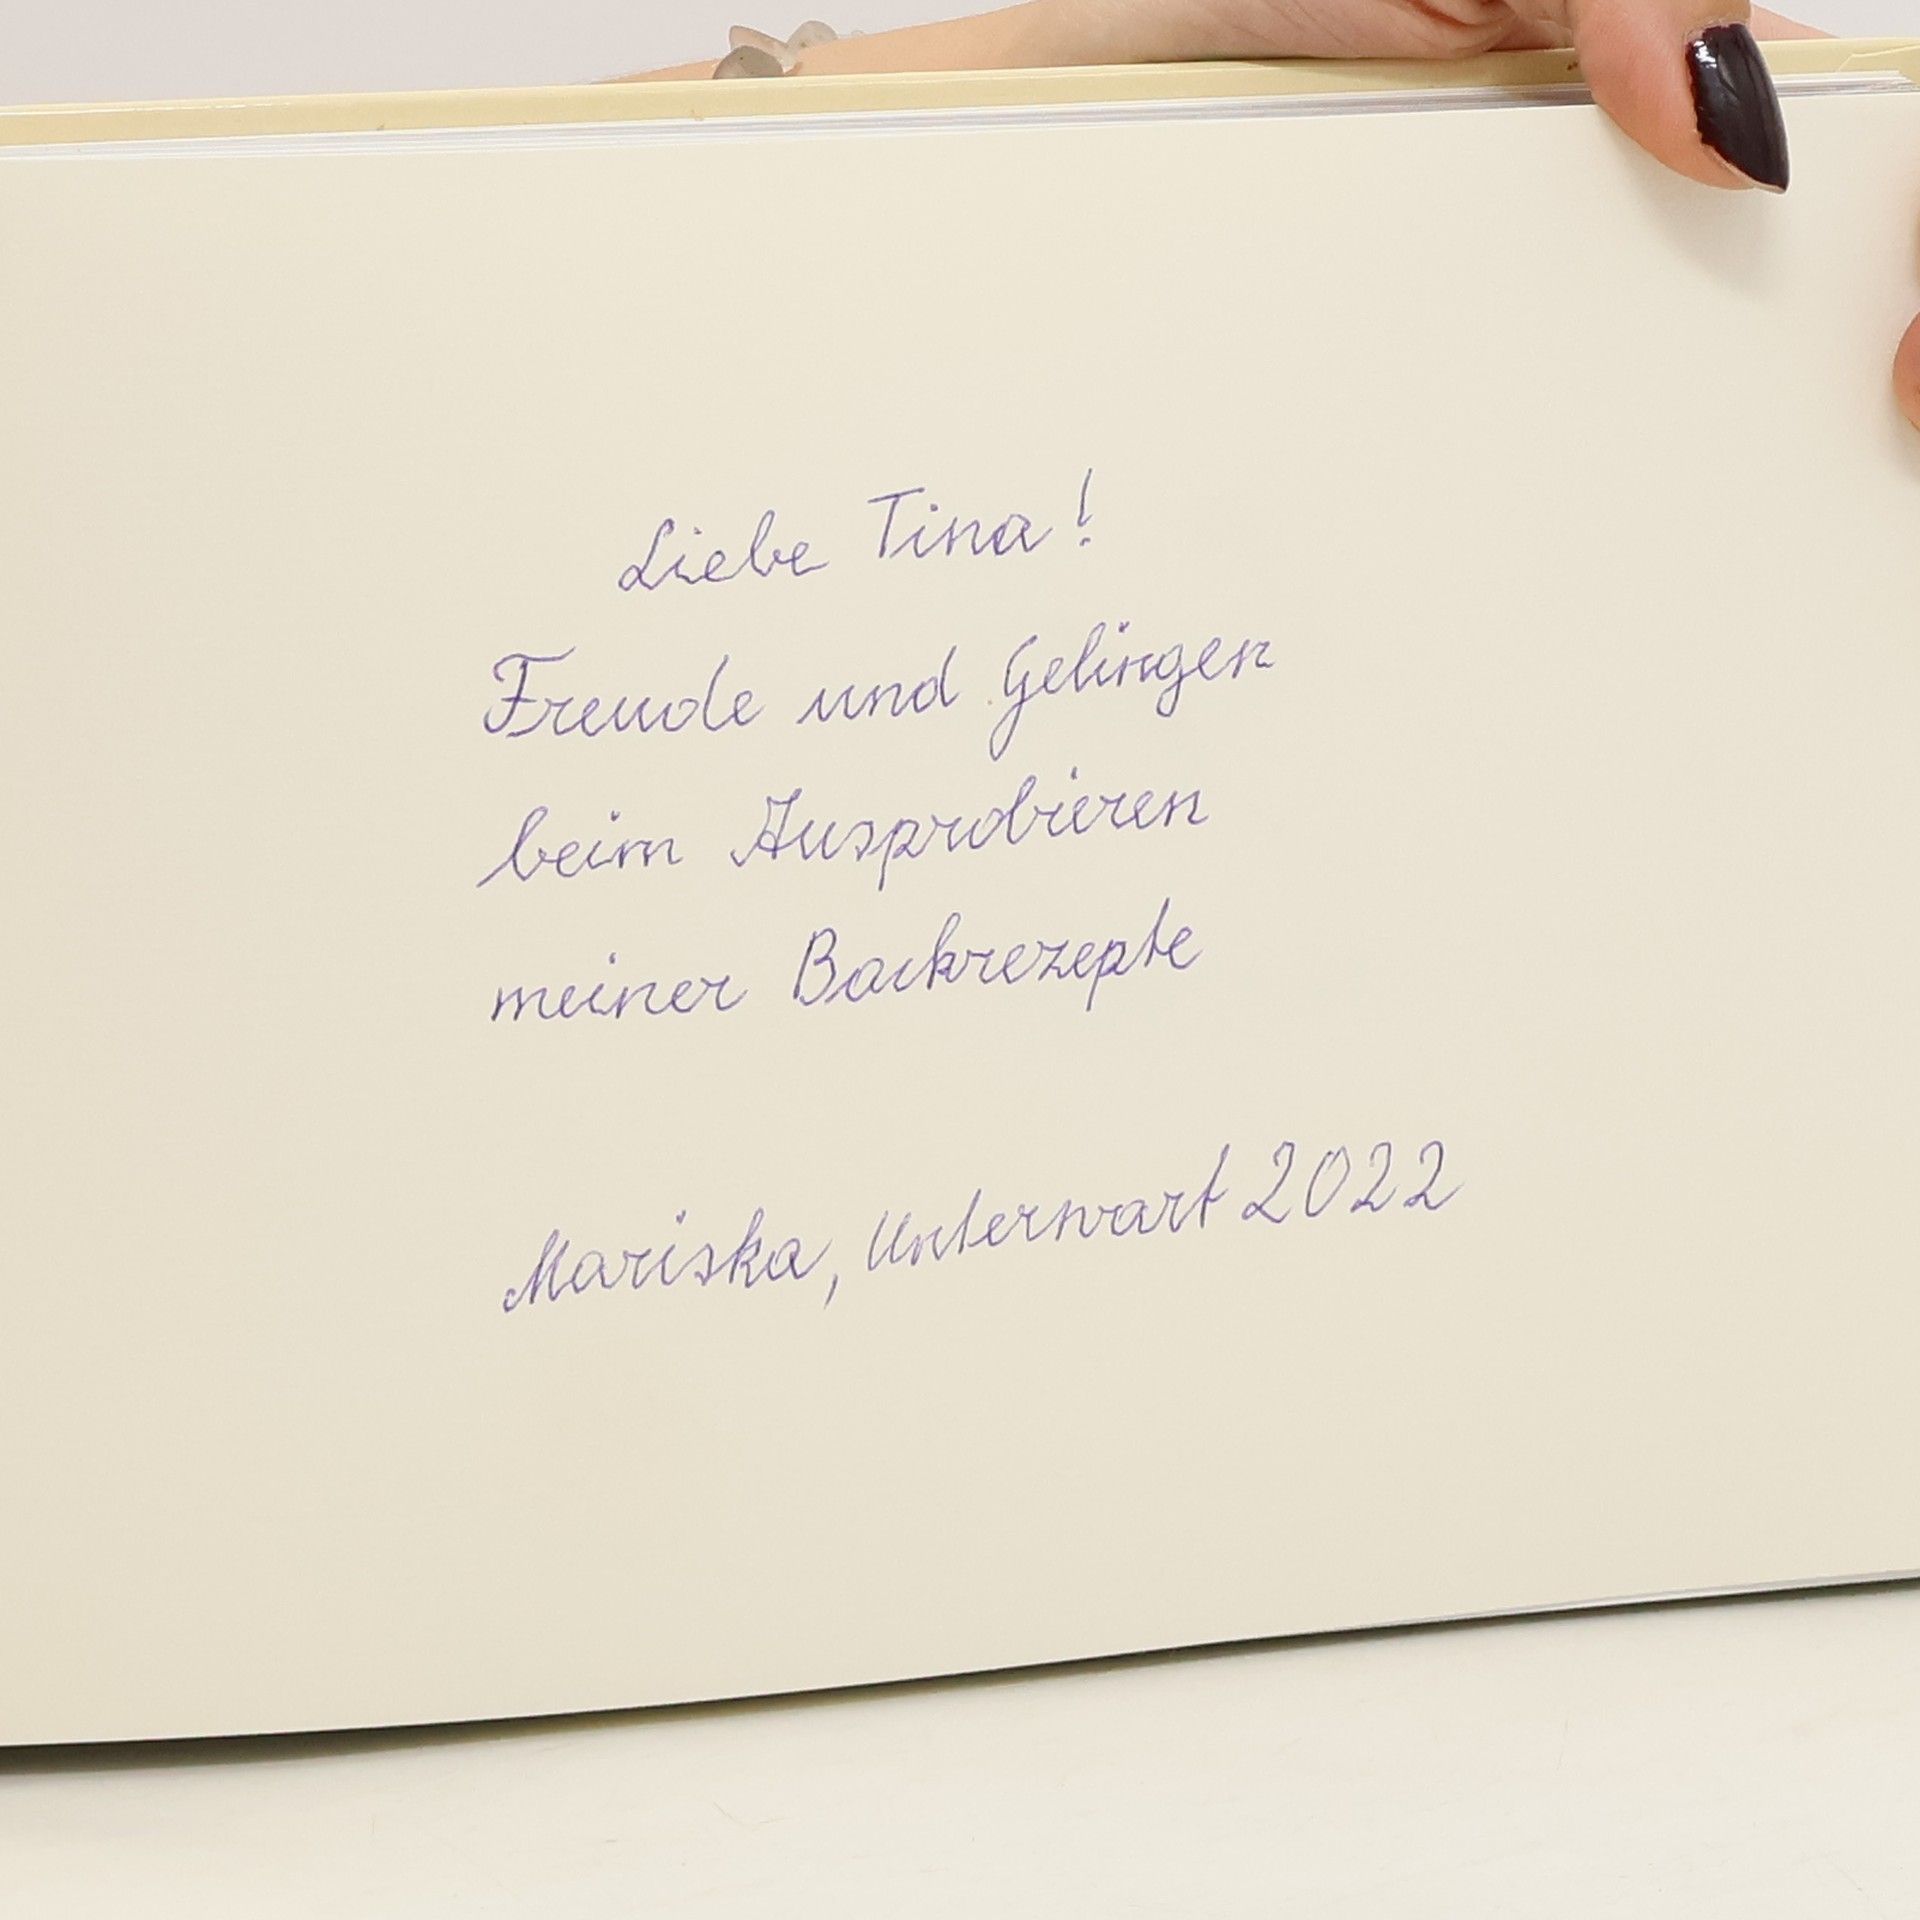 Liebe Tina!
Freude und Gelingen
beim Ausprobieren
meiner Backrezepte
Mariska, Unterwart 2022